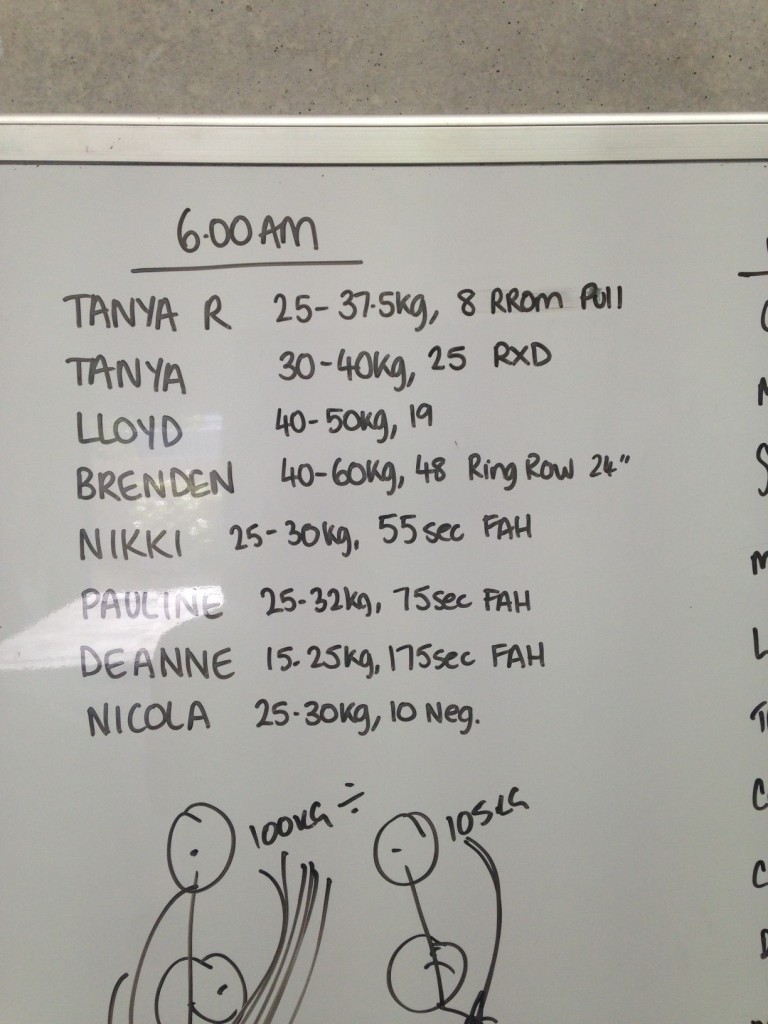 6.00AM
TANYA R 25-37.5kg, 8 RROM PUll
TANYA 30-40kg, 25 RXD
LLOYD 40-50kg, 19
BRENDEN 40-60kg, 48 Ring Row 24"
NIKKI 25-30kg, 55sec FAH
PAULINE 25-32kg, 75sec FAH
DEANNE 15-25kg, 175sec FAH
NICOLA 25-30kg, 10 Neg.
100KG ÷ 105KG